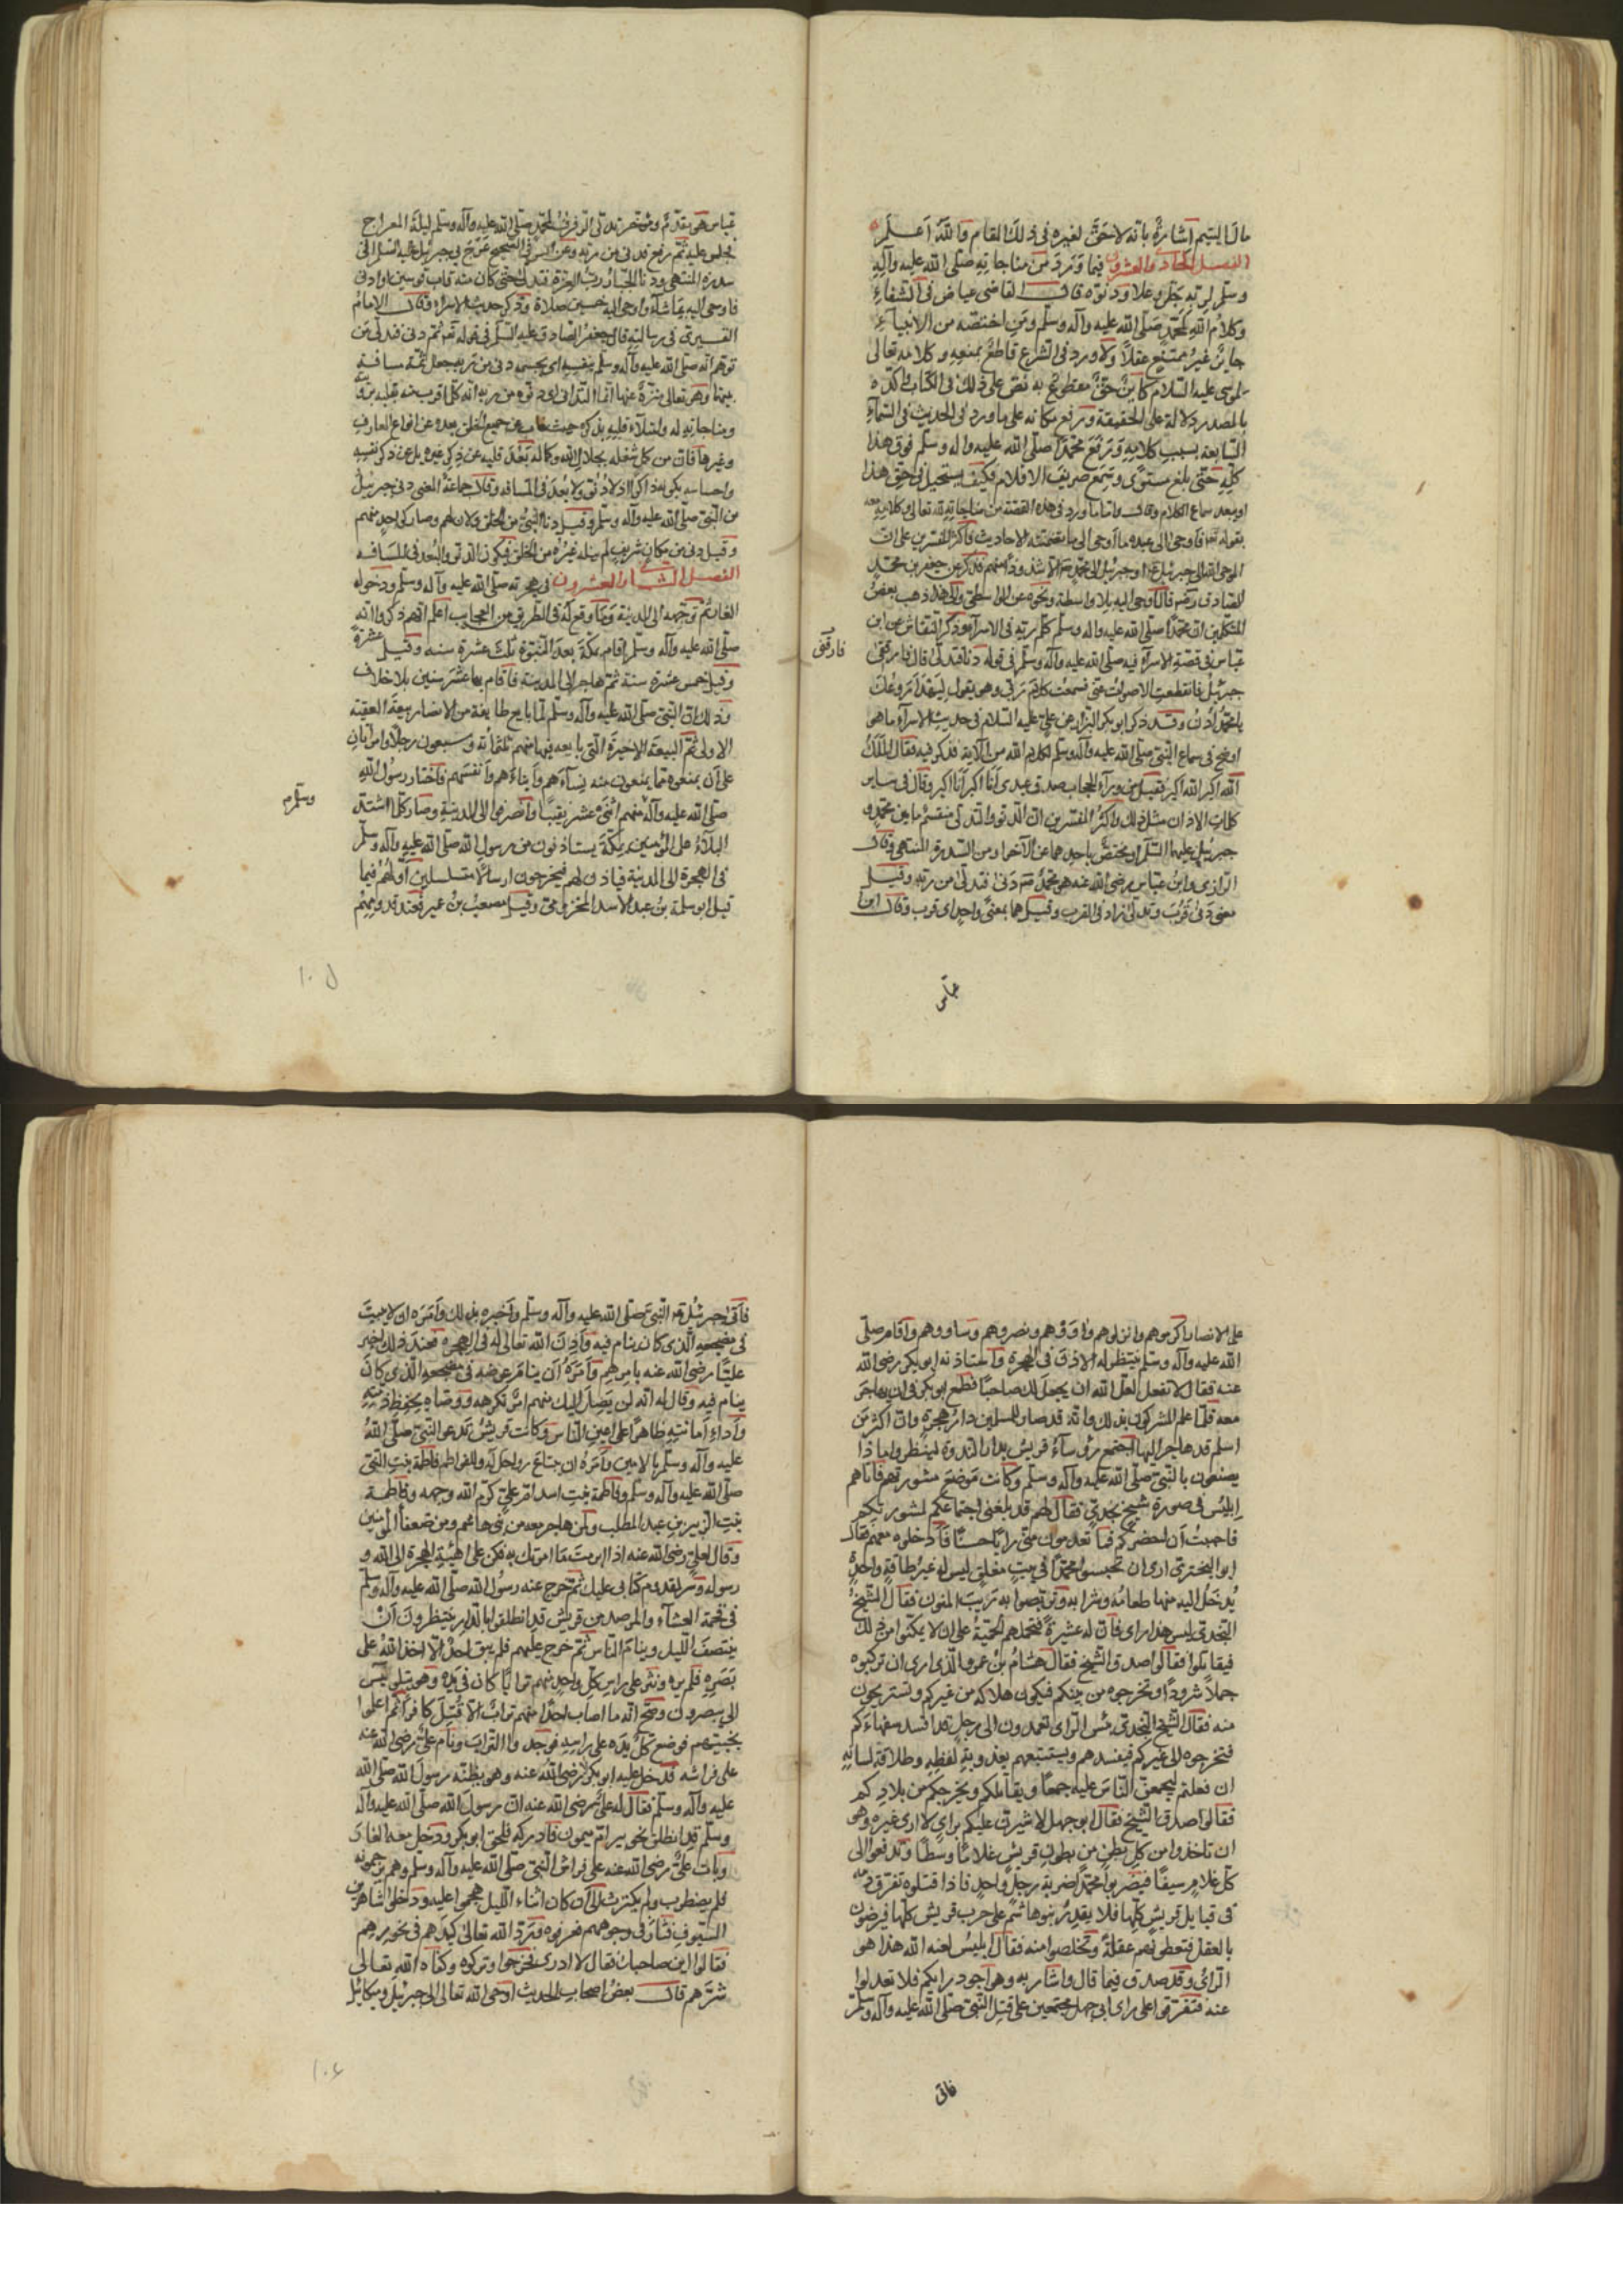 مال اليتيم اشارة بانه لا حق لغيره في ذلك المقام والله اعلم
الفصل الحادي والعشرون فيما ورد من مناجاته صلى الله عليه وآله
وسلم لربه جل وعلا ودنوه قال القاضي عياض في الشفاء
وكلام الله لمحمد صلى الله عليه وآله وسلم ومن اختصه من الانبياء
جايز غير ممتنع عقلا ولا ورد في الشرع قاطع بمنعه وكلامه تعالى
لموسى عليه السلام كاين حق مقطوع به نص على ذلك في الكتاب واكده
بالمصدر دلالة على الحقيقة ورفع مكانه على ما ورد في الحديث في السماء
السابعة بسبب كلامه ورفع محمدا صلى الله عليه واله وسلم فوق هذا
كله حتى بلغ مستوى وسمع صريف الاقلام فكيف يستحيل في حق هذا
او يبعد سماع الكلام وقال واما ما ورد في هذه القصة من مناجاته لله تعالى وكلامه معه
بقوله تعه فاوحى الى عبده ما اوحى الى ما تضمنته الاحاديث فاكثر المفسرين على ان
الموحي الله الى جبرئيل وجبرئيل الى محمد الا شذوذا منهم فذكر عن جعفر بن محمد
الصادق قال اوحى اليه بلا واسطة ونحوه عن الواسطي والى هذا ذهب بعض
المتكلمين ان محمدا صلى الله عليه واله وسلم كلم ربه في الاسراء وذكر النقاش عن ابن
عباس في قصة الاسراء فيه صلى الله عليه وآله وسلم في قوله دنا فتدلى قال فارقني
جبرئيل فانقطعت الاصوات عني فسمعت كلام ربي وهو يقول ليهدأ روعك
يا محمد ادن وقد ذكر ابو بكر البزار عن علي عليه السلام في حديث الاسراء ما هو
اوضح في سماع النبي صلى الله عليه وآله وسلم لكلام الله من الآية فذكر فيه فقال الملك
الله اكبر الله اكبر فقيل من وراء الحجاب صدق عبدي انا اكبر انا اكبر وقال في ساير
كلمات الاذان مثل ذلك واكثر المفسرين ان الدنو والتدلي منقسم ما بين محمد و
جبرئيل عليهما السلم او يختص باحدهما عن الآخر او من السدرة المنتهى وقال
الرازي وابن عباس رضي الله عنه هو محمد دنى فتدلى من ربه وقيل
معنى دنى قرب وتدلى زاد في القرب وقيل هما بمعنى واحد اي قرب وقال ابن
عباس
فارقني
عباس هو مقدم ومؤخر تدلى الرفرف لمحمد صلى الله عليه وآله وسلم ليلة المعراج
فجلس عليه ثم رفع فدنى من ربه وعن انس في الصحيح عرج بي جبرئيل عليه السلم الى
سدرة المنتهى ودنا الجبار رب العزة فتدلى حتى كان منه قاب قوسين او ادنى
فاوحى اليه بما شاء واوحى اليه خمسين صلاة وذكر حديث الاسراء وقال الامام
القشيري في رسالته قال جعفر الصادق عليه السلم في قوله تعه ثم دنى فتدلى من
توهم انه صلى الله عليه وآله وسلم بنفسه اي بجسمه دنى من ربه جعل ثمة مسافة
بينهما وهو تعالى منزه عنها انما التداني اي دنوه من ربه انه كلما قرب منه
ومناجاته له وامتلاء قلبه بذكره حيث غاب عن جميع الخلق بعده عن انواع المعارف
وغيرها فان من كل شغله بجلال الله وكماله بعد قلبه عن ذكر غيره بل عن ذكر نفسه
واحساسه بكونه ذاكرا اذ لا دنو ولا بعد في المسافة وقال جماعة المعنى دنى جبرئيل
من النبي صلى الله عليه وآله وسلم وقيل دنا النبي من الخلق ولان لهم وصار كواحد منهم
وقيل دنى من مكان شريف لم ينله غيره من الخلق فيكون الدنو والبعد في المسافه
الفصل الثاني والعشرون في هجرته صلى الله عليه وآله وسلم ودخوله
الغار ثم توجهه الى المدينة وما وقع له في الطريق من العجايب اعلم انهم ذكروا انه
صلى الله عليه وآله وسلم اقام بمكة بعد النبوة ثلث عشرة سنه وقيل عشرة
وقيل خمس عشرة سنة ثم هاجر الى المدينة فاقام بها عشر سنين بلا خلاف
وذلك ان النبي صلى الله عليه وآله وسلم لما بايع طايفة من الانصار بيعة العقبة
الاولى ثم البيعة الاخيرة التي بايعه فيها منهم ثلثمائة وسبعون رجلا وامراتان
على ان يمنعوه مما يمنعون منه نساءهم وابناءهم وانفسهم فاختار رسول الله
صلى الله عليه وآله منهم اثنى عشر نقيبا وانصرفوا الى المدينة وصار كلما اشتد
البلاء على المؤمنين بمكة يستاذنون من رسول الله صلى الله عليه وآله وسلم
في الهجرة الى المدينة فياذن لهم فيخرجون ارسالا متسللين اولهم فيما
قيل ابو سلمة بن عبد الاسد المخزومي وقيل مصعب بن عمير فعند قدومهم
وسلم م
على الانصار اكرموهم وانزلوهم واووهم ونصروهم وساووهم واقام صلى
الله عليه وآله وسلم ينتظر له الاذن في الهجرة واستاذنه ابو بكر رضي الله
عنه فقال لا تفعل لعل الله ان يجعل لك صاحبا فطمع ابو بكر في ان يهاجر
معه فلما علم المشركون بذلك وانه قد صار للمسلمين دار هجرة وان اكثر من
اسلم قد هاجر اليها اجتمع رؤساء قريش بدار الندوة لينظروا ماذا
يصنعون بالنبي صلى الله عليه وآله وسلم وكانت موضع مشورتهم فاتاهم
ابليس في صورة شيخ نجدي فقال لهم قد بلغني اجتماعكم لشورتكم
فاحببت ان احضركم فما تعدمون مني رايا حسنا فادخلوه معهم فقال
ابو البختري ارى ان تحبسوا محمدا في بيت مغلق ليس له غير طاقة واحدة
يدخل اليه منها طعامه وشرابه وتربصوا به ريب المنون فقال الشيخ
النجدي ليس هذا براى فان له عشيرة فتحملهم الحمية على ان لا يمكنوا من ذلك
فيقاتلوا فقالوا صدق الشيخ فقال هشام بن عمرو الذي ارى ان تركبوه
جملا شرودا وتخرجوه من بينكم فيكون هلاكه من غيركم وتستريحون
منه فقال الشيخ النجدي بئس الراى تعمدون الى رجل قد افسد سفهاءكم
فتخرجوه الى غيركم فيفسدهم ويستتبعهم بعذوبة لفظه وطلاقة لسانه
ان فعلتم ليجمعن الناس عليه جمعا ويقاتلكم ويخرجكم من بلادكم
فقالوا صدق الشيخ فقال ابو جهل لاشيرن عليكم براي لا ارى غيره وهو
ان تاخذوا من كل بطن من بطون قريش غلاما وسطا وتدفعوا الى
كل غلام سيفا فيضربوا محمدا ضربة رجل واحد فاذا قتلوه تفرق دمه
في قبايل قريش كلها فلا يقدر بنو هاشم على حرب قريش كلها فيرضون
بالعقل فتعطونهم عقله وتخلصوا منه فقال ابليس لعنه الله هذا هو
الرائ وقد صدق فيما قال واشار به وهو اجود رايكم فلا تعدلوا
عنه فتفرقوا على راى ابي جهل مجتمعين على قتل النبي صلى الله عليه وآله وسلم
فاتى
فاتى جبرئيل النبي صلى الله عليه وآله وسلم واخبره بذلك وامره ان لا يبيت
في مضجعه الذي كان ينام فيه واذن الله تعالى له في الهجرة فعند ذلك اخبر
عليا رضي الله عنه بامرهم وامره ان ينام عوضه في مضجعه الذي كان
ينام فيه وقال له انه لن يصل اليك منهم امر تكرهه ووصاه بحفظ ذمته
واداء امانته ظاهرا على اعين الناس وكانت قريش تدعو النبي صلى الله
عليه وآله وسلم بالامين وامره ان يبتاع رواحل له وللفواطم فاطمة بنت النبي
صلى الله عليه وآله وسلم وفاطمة بنت اسد ام علي كرم الله وجهه وفاطمة
بنت الزبير بن عبد المطلب ولمن هاجر معه من بني هاشم ومن ضعفاء المؤمنين
وقال لعلي رضي الله عنه اذا ابرمت ما امرتك به فكن على اهبة الهجرة الى الله و
رسوله وسر لقدوم كتابي عليك ثم خرج عنه رسول الله صلى الله عليه وآله وسلم
في فحمة العشاء والمرصد من قريش قد اطلقوا بالدار ينتظرون ان
ينتصف الليل وينام الناس ثم خرج عليهم فلم يبق احد الا اخذ الله على
بصره فلم يره ونثر على راس كل واحد منهم ترابا كان في يده وهو يتلو يس
الى يبصرون وصح انه ما اصاب احدا منهم تراب الا قتل كافرا ثم اعلموا
بخيبتهم فوضع كل يده على راسه فوجدوا التراب ونام علي رضي الله عنه
على فراشه فدخل عليه ابو بكر رضي الله عنه وهو يظنه رسول الله صلى الله
عليه وآله وسلم فقال له علي رضي الله عنه ان رسول الله صلى الله عليه وآله
وسلم قد انطلق نحو بير ام ميمون فادركه فلحق ابو بكر ودخل معه الغار
وبات علي رضي الله عنه على فراش النبي صلى الله عليه وآله وسلم وهم يرجمونه
فلم يضطرب ولم يكترث الى ان كان اثناء الليل هجموا عليه ودخلوا شاهرين
السيوف فثار في وجوههم فعرفوه فرد الله تعالى كيدهم في نحورهم
فقالوا اين صاحبك فقال لا ادري فخرجوا وتركوه وكفاه الله تعالى
شرهم قال بعض اصحاب الحديث اوحى الله تعالى الى جبرئيل وميكائيل